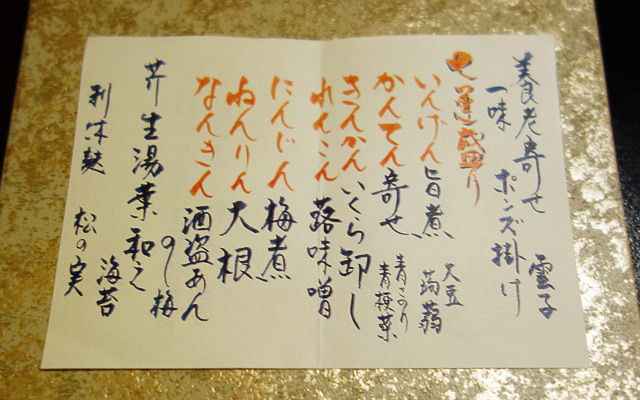 養老寄せ 雲子
一味 ポンズ掛け
七運盛り
いんげん旨煮 大豆 蒟蒻
かんてん寄せ 青さのり 青梗菜
きんかんいくら卸し
れんこん蕗味噌
にんじん梅煮
ねんりん大根
なんきん酒盗あん
のし梅
芹生湯葉和え 海苔
利休麩 松の実